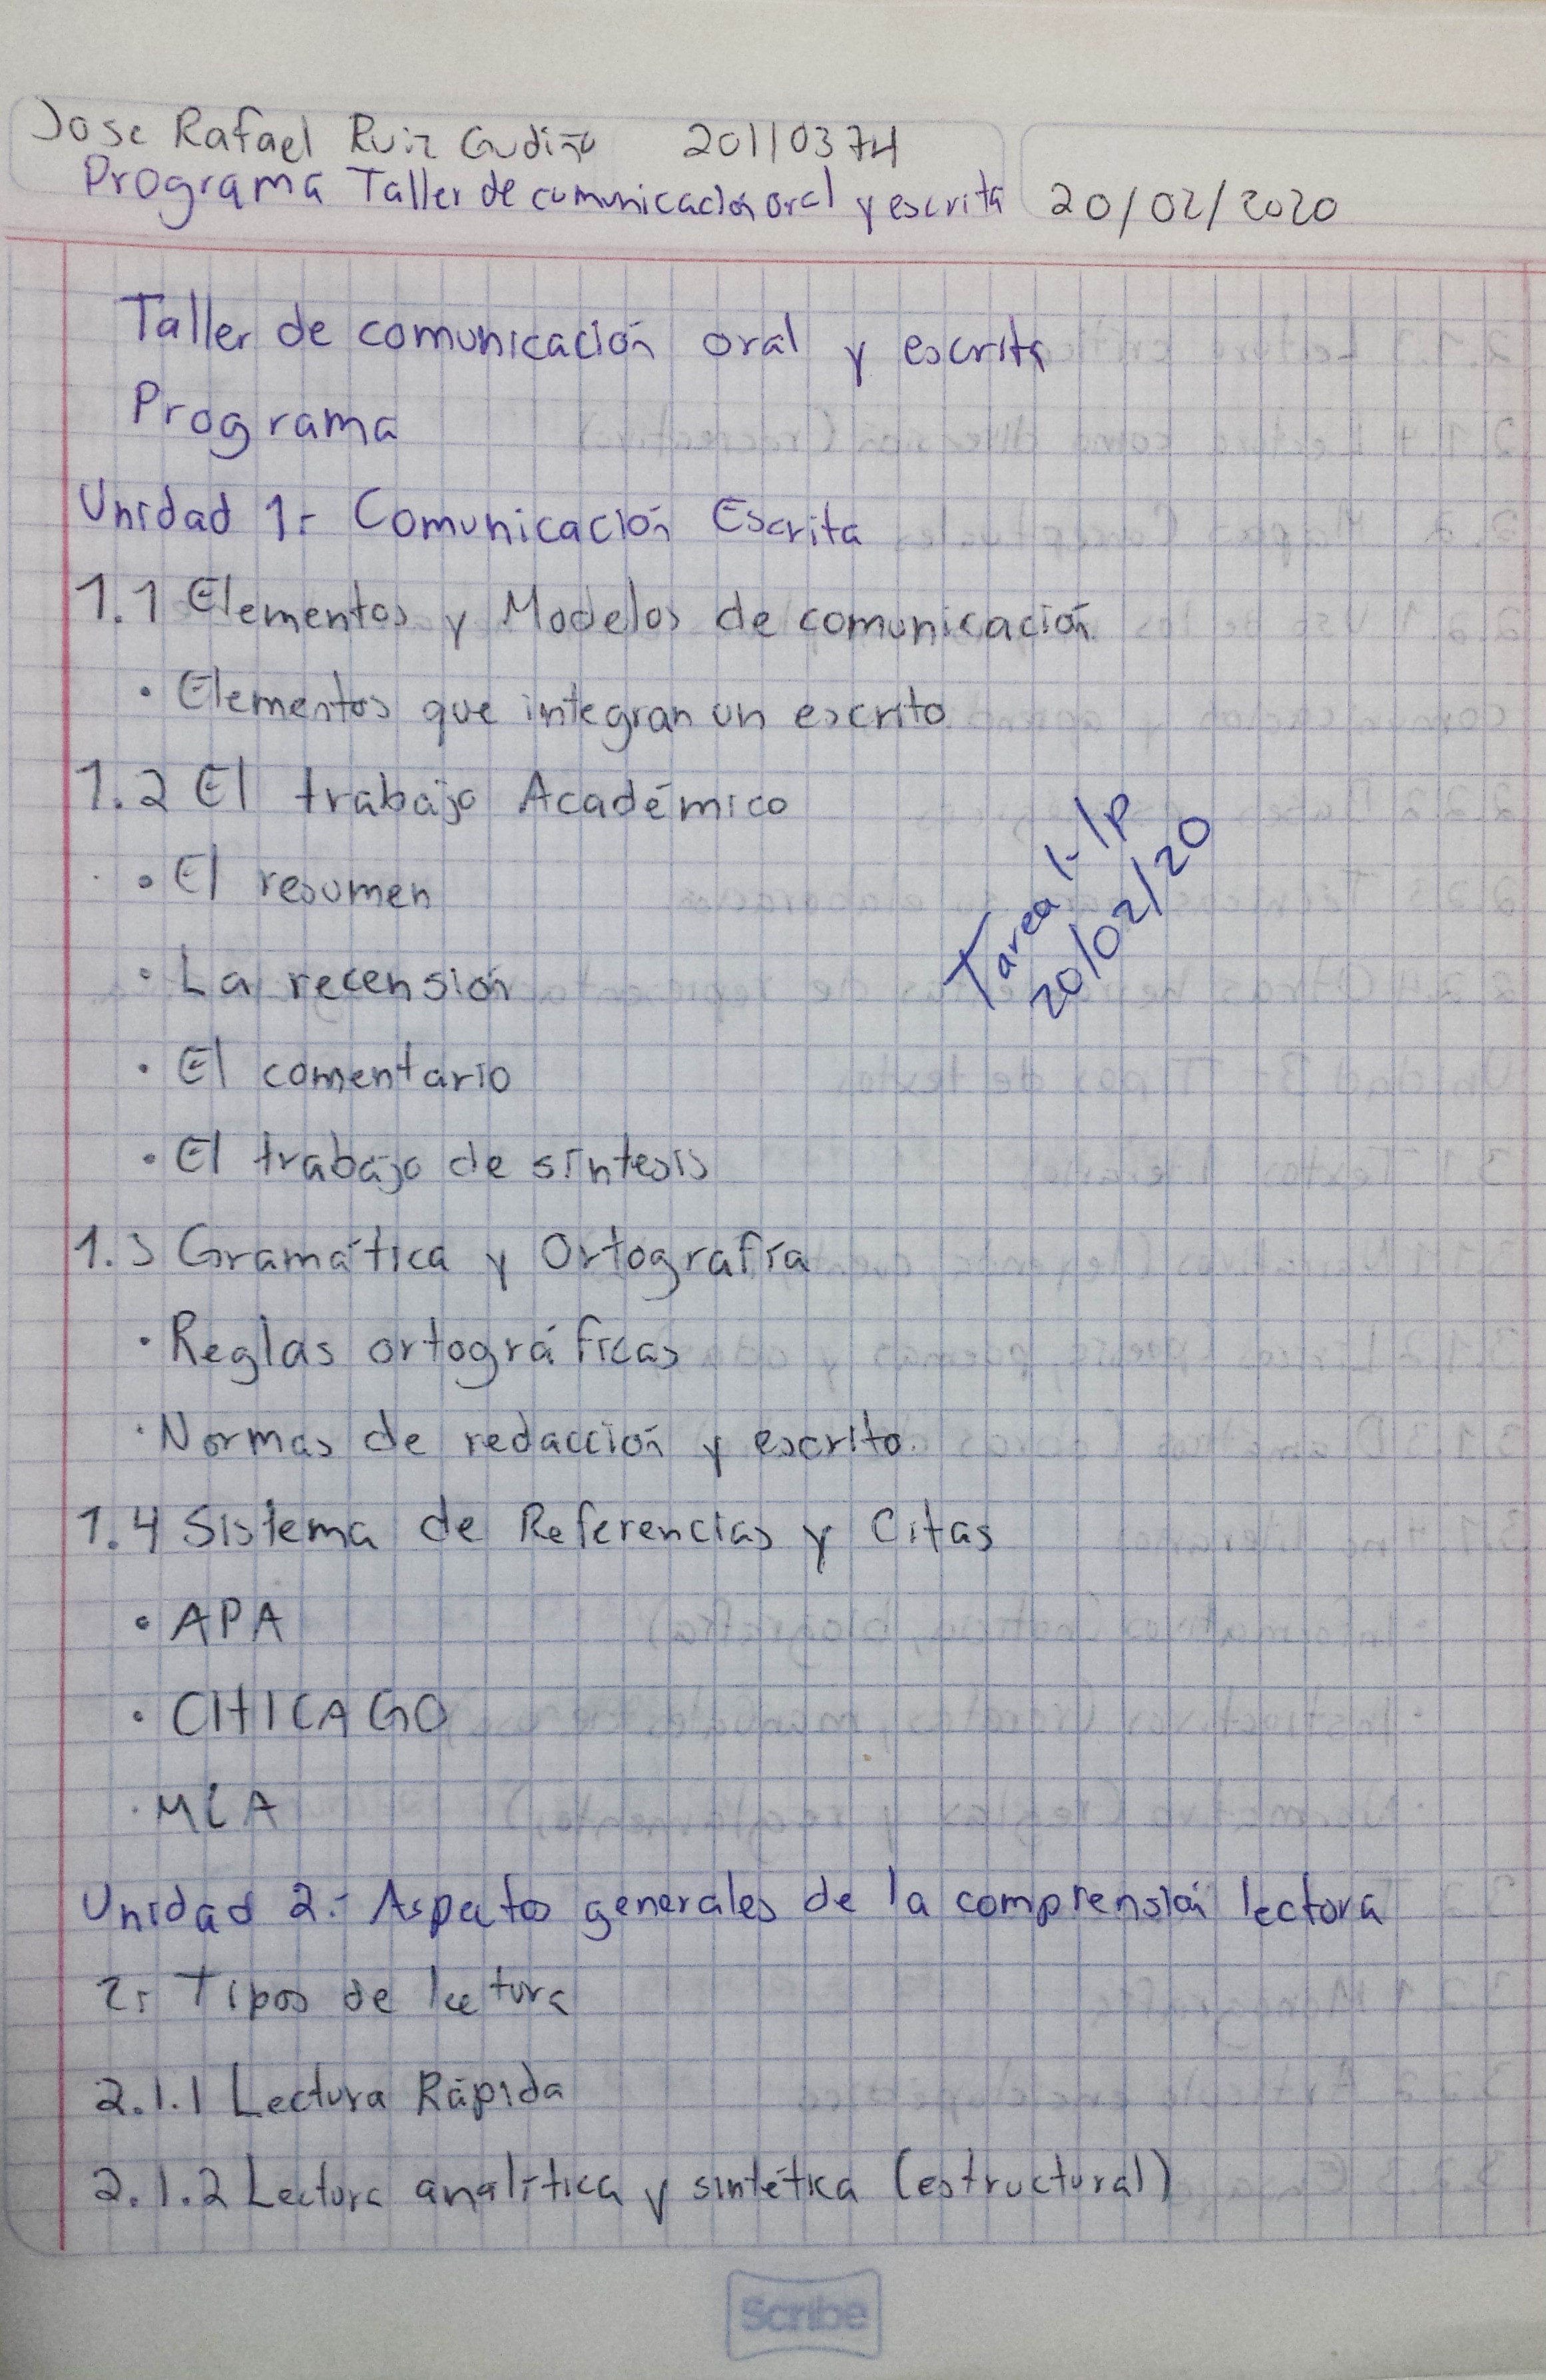 Jose Rafael Ruiz Gudiño 20110374
Programa Taller de comunicación oral y escrita 20/02/2020
Taller de comunicación oral y escrita
Programa
Unidad 1.- Comunicación Escrita
1.1 Elementos y Modelos de comunicación.
• Elementos que integran un escrito.
1.2 El trabajo Académico
• El resumen
• La recensión
• El comentario
• El trabajo de síntesis
Tarea 1-1P
20/02/20
1.3 Gramática y Ortografía
• Reglas ortográficas
• Normas de redacción y escrito.
1.4 Sistema de Referencias y Citas
• APA
• CHICAGO
• MLA
Unidad 2.- Aspectos generales de la comprensión lectora
2.- Tipos de lectura
2.1.1 Lectura Rápida
2.1.2 Lectura analítica y sintética (estructural)
Scribe